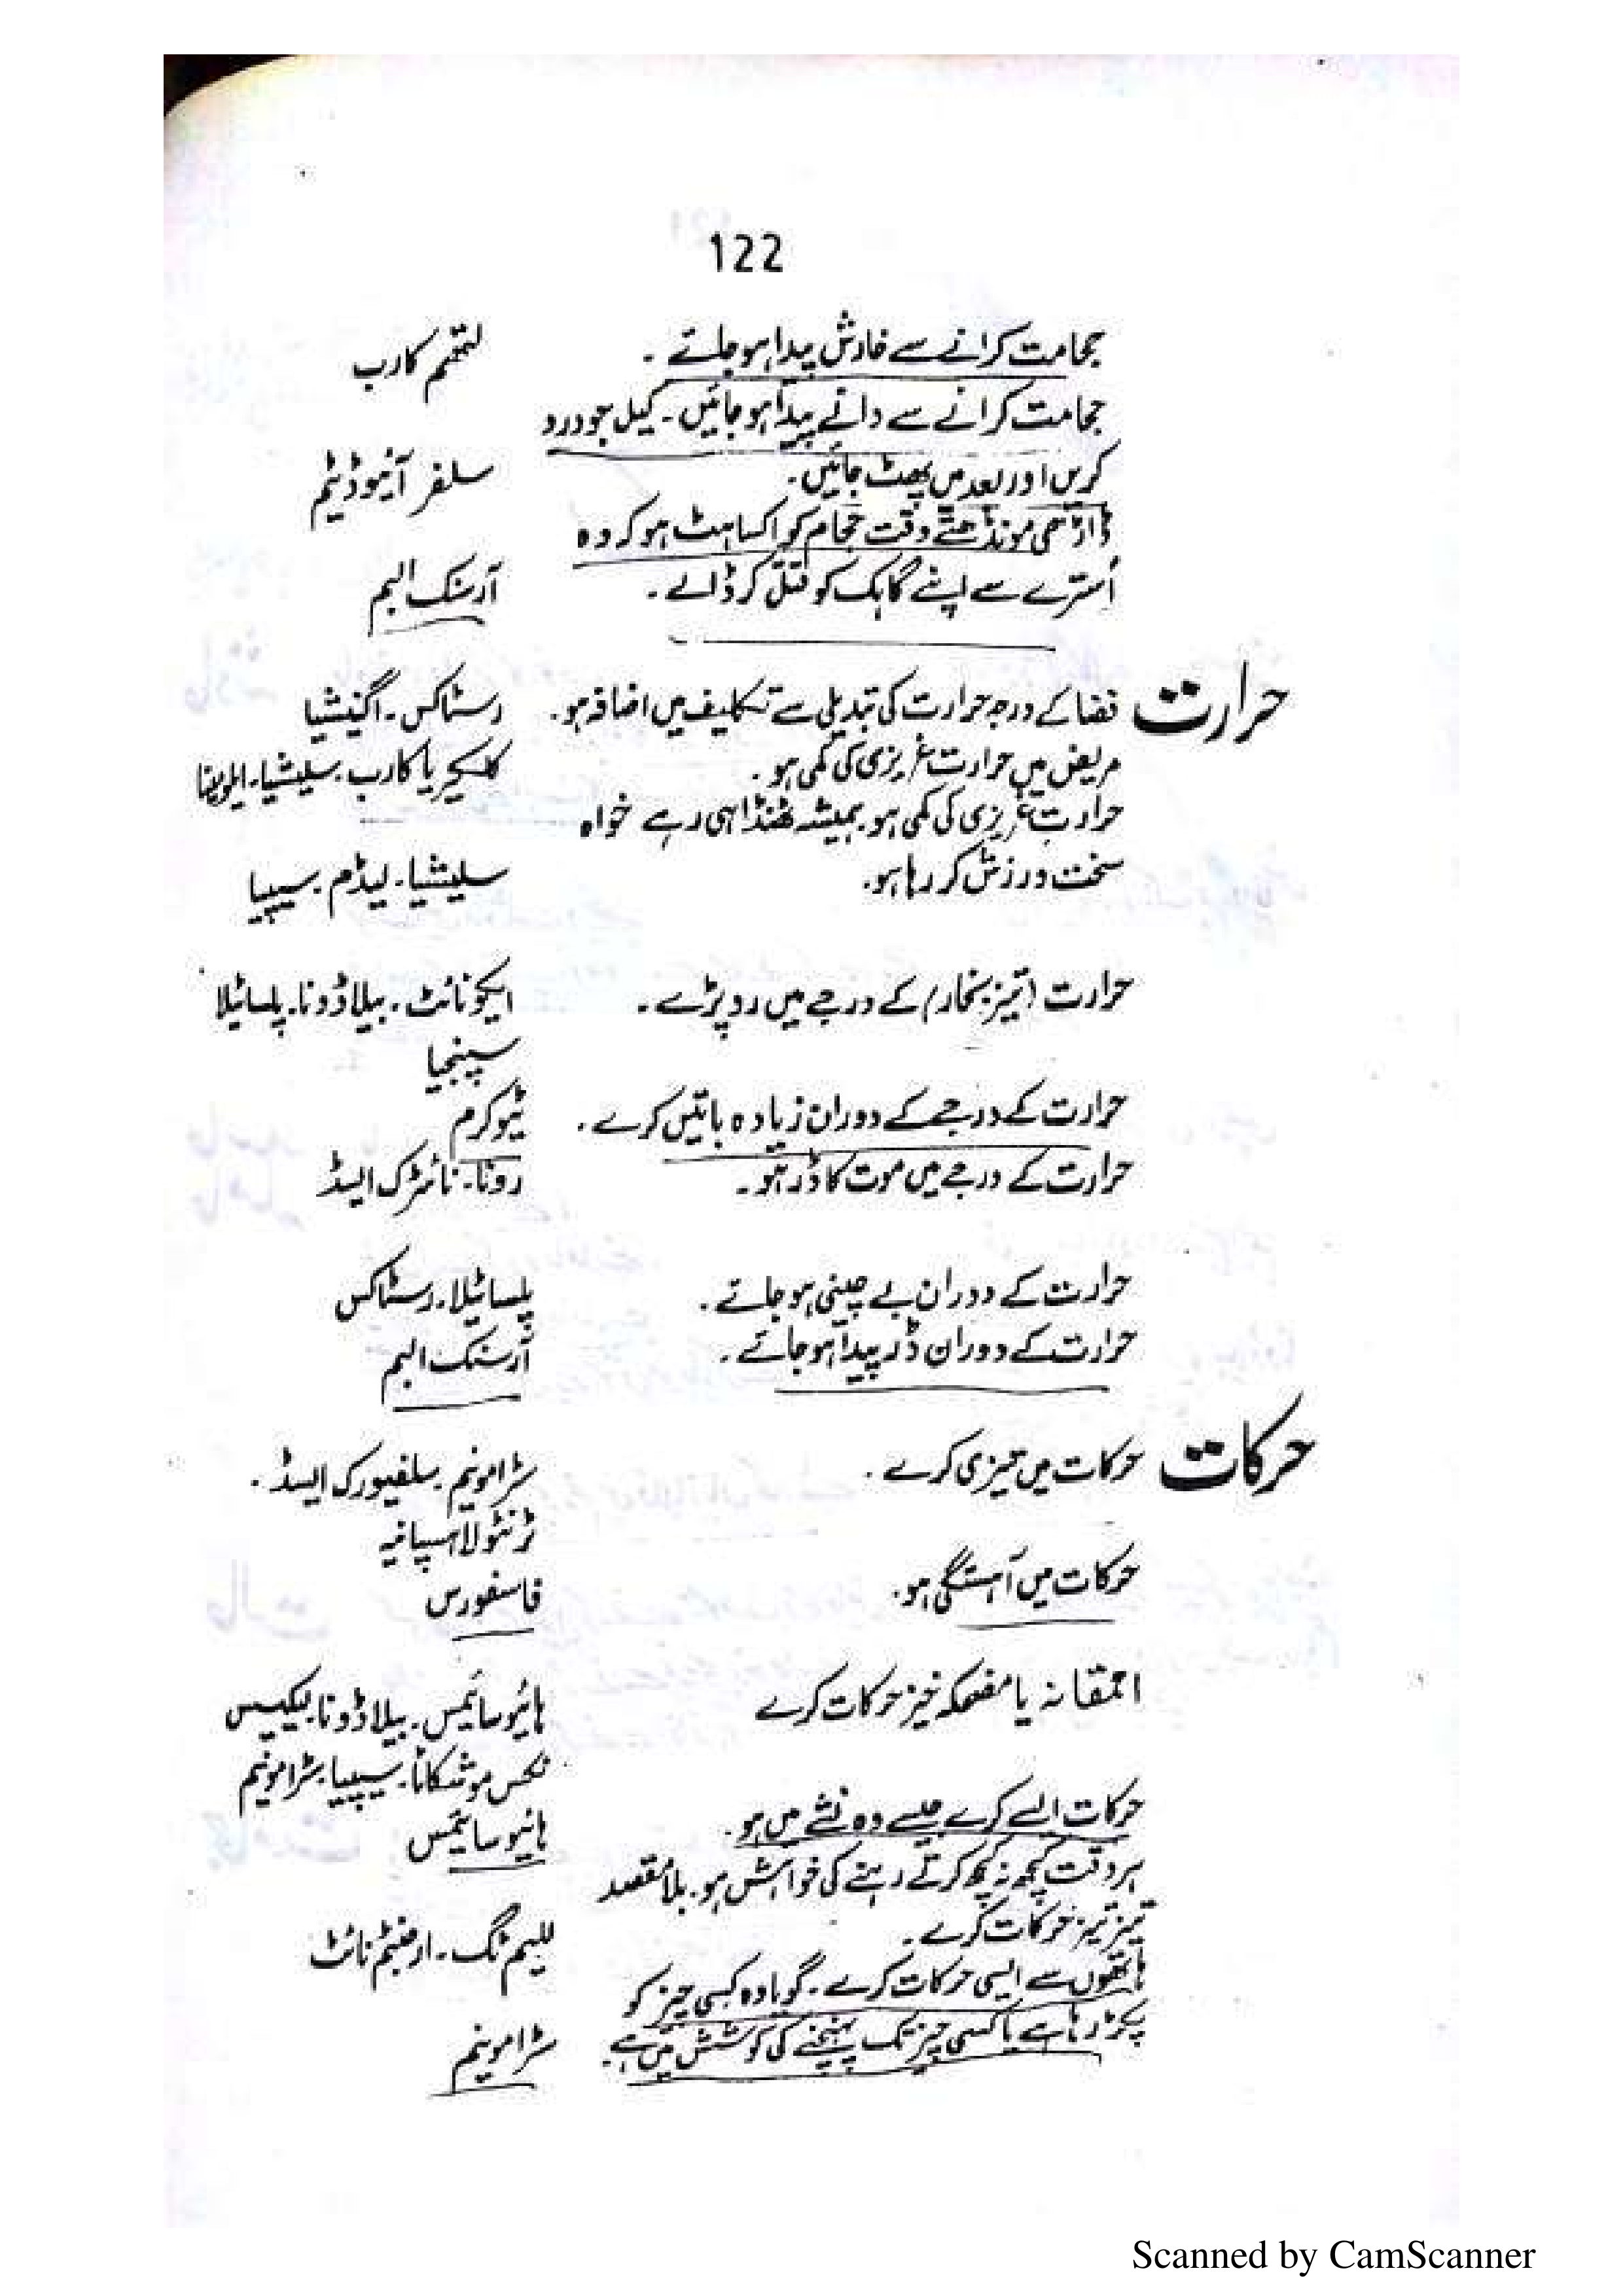 122
حجامت کرانے سے خارش پیدا ہو جائے ۔ لتھیم کارب
حجامت کرانے سے دانے پیدا ہو جائیں ۔ کیل جو درد
کریں اور بعد میں پھٹ جائیں ۔ سلفر آئیوڈیٹم
ڈاڑھی مونڈھتے وقت حجام کو اکساہٹ ہو کہ وہ
اُسترے سے اپنے گاہک کو قتل کر ڈالے ۔ آرسنک البم
حرارت فضا کے درجہ حرارت کی تبدیلی سے تکلیف میں اضافہ ہو ۔ رسٹاکس ۔ اگنیشیا
مریض میں حرارت غریزی کی کمی ہو ۔ کلکیریا کارب ۔ سلیشیا ۔ ایلومینا
حرارت غریزی کی کمی ہو ۔ ہمیشہ ٹھنڈا ہی رہے خواہ
سخت ورزش کر رہا ہو ۔ سلیشیا ۔ لیڈم ۔ سیپیا
حرارت (تیز بخار) کے درجے میں رو پڑے ۔ ایکونائٹ ۔ بیلاڈونا ۔ پلساٹیلا
سپنجیا
حرارت کے درجے کے دوران زیادہ باتیں کرے ۔ ٹیوکرم
حرارت کے درجے میں موت کا ڈر ہو ۔ روٹا ۔ نائٹرک ایسڈ
حرارت کے دوران بے چینی ہو جائے ۔ پلساٹیلا ۔ رسٹاکس
حرارت کے دوران ڈر پیدا ہو جائے ۔ آرسنک البم
حرکات حرکات میں تیزی کرے ۔ سٹرامونیم ۔ سلفیورک ایسڈ ۔
ٹرنٹولا ہسپانیہ
حرکات میں آہستگی ہو ۔ فاسفورس
احمقانہ یا مضحکہ خیز حرکات کرے ہائیوسائمس ۔ بیلاڈونا ۔ لیکیسس
نکس موشکاٹا ۔ سیپیا ۔ سٹرامونیم
حرکات ایسے کرے جیسے وہ نشے میں ہو ۔ ہائیوسائمس
ہر وقت کچھ نہ کچھ کرتے رہنے کی خواہش ہو ۔ بلا مقصد
تیز تیز حرکات کرے ۔ للیم ٹگ ۔ ارجنٹم نائٹ
ہاتھوں سے ایسی حرکات کرے ۔ گویا وہ کسی چیز کو
پکڑ رہا ہے یا کسی چیز تک پہنچنے کی کوشش میں ہے ۔ سٹرامونیم
Scanned by CamScanner